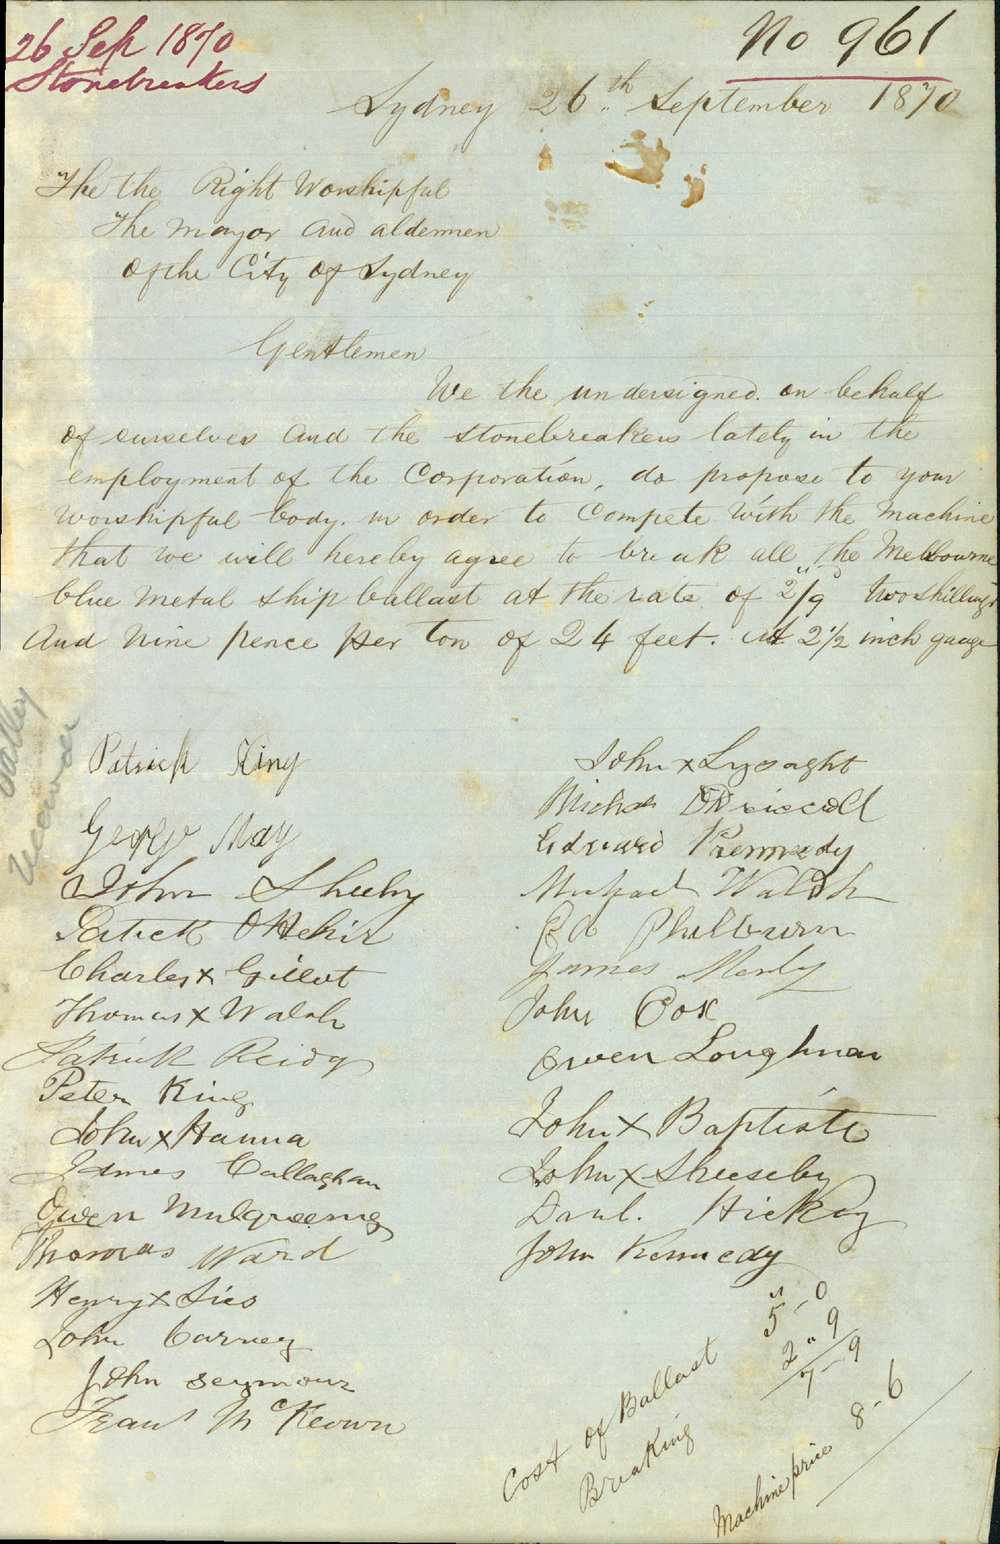 26 Sep 1870
Stonebreakers
No 961
Sydney 26th September 1870
The the Right Worshipful
The Mayor and aldermen
of the City of Sydney
Gentlemen
We the undersigned. on behalf
of ourselves and the stonebreakers lately in the
employment of the Corporation, do propose to your
worshipful body. in order to compete with the Machine
that we will hereby agree to break all the Melbourne
blue metal ship ballast at the rate of 2/9 two shillings
and nine pence per ton of 24 feet. at 2 1/2 inch guage
Patrick King
George May
John Sheehy
Patrick O Hehir
Charles x Gillot
Thomas x Walsh
Patrick Reidy
Peter King
John x Hanna
James Callaghan
Owen Mulgreeny
Thomas Ward
Henry x Sies
John Carney
John Seymour
McKeown
John x Lysaght
Michael O Driscoll
Edward Kennedy
Michael Walsh
Ed Philburn
James
John Cox
Owen Loughnan
John x Baptiste
John x Sheeseby
Danl. Hickey
John Kennedy
Cost of Ballast 5 - 0
Breaking 2 " 9
7 - 9
Machine price 8 - 6